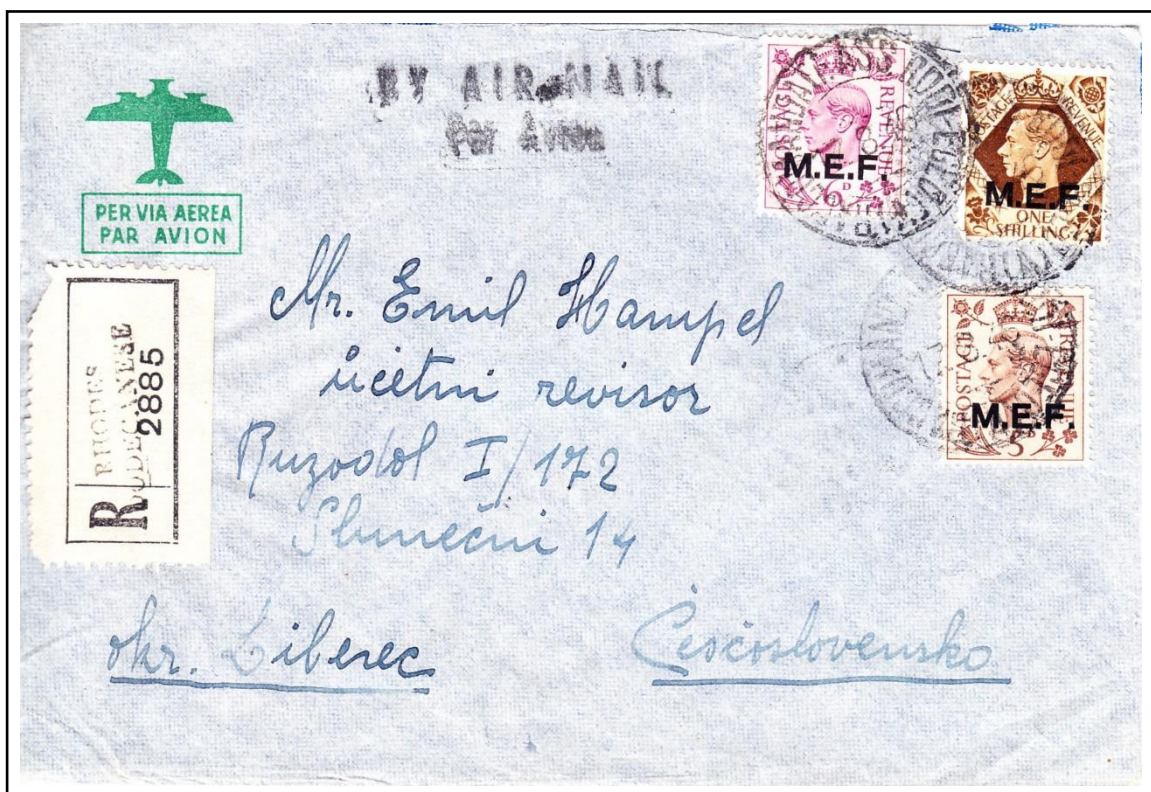 BY AIR MAIL
Par Avion
PER VIA AEREA
PAR AVION
POSTAGE REVENUE
M.E.F.
6D
POSTAGE REVENUE
M.E.F.
ONE
SHILLING
POSTAGE REVENUE
M.E.F.
5D
R
RHODES
DODECANESE
2885
Mr. Emil Hampel
účetni revisor
Ruzodol I/172
Slunečni 14
okr. Liberec
Česčoslovensko